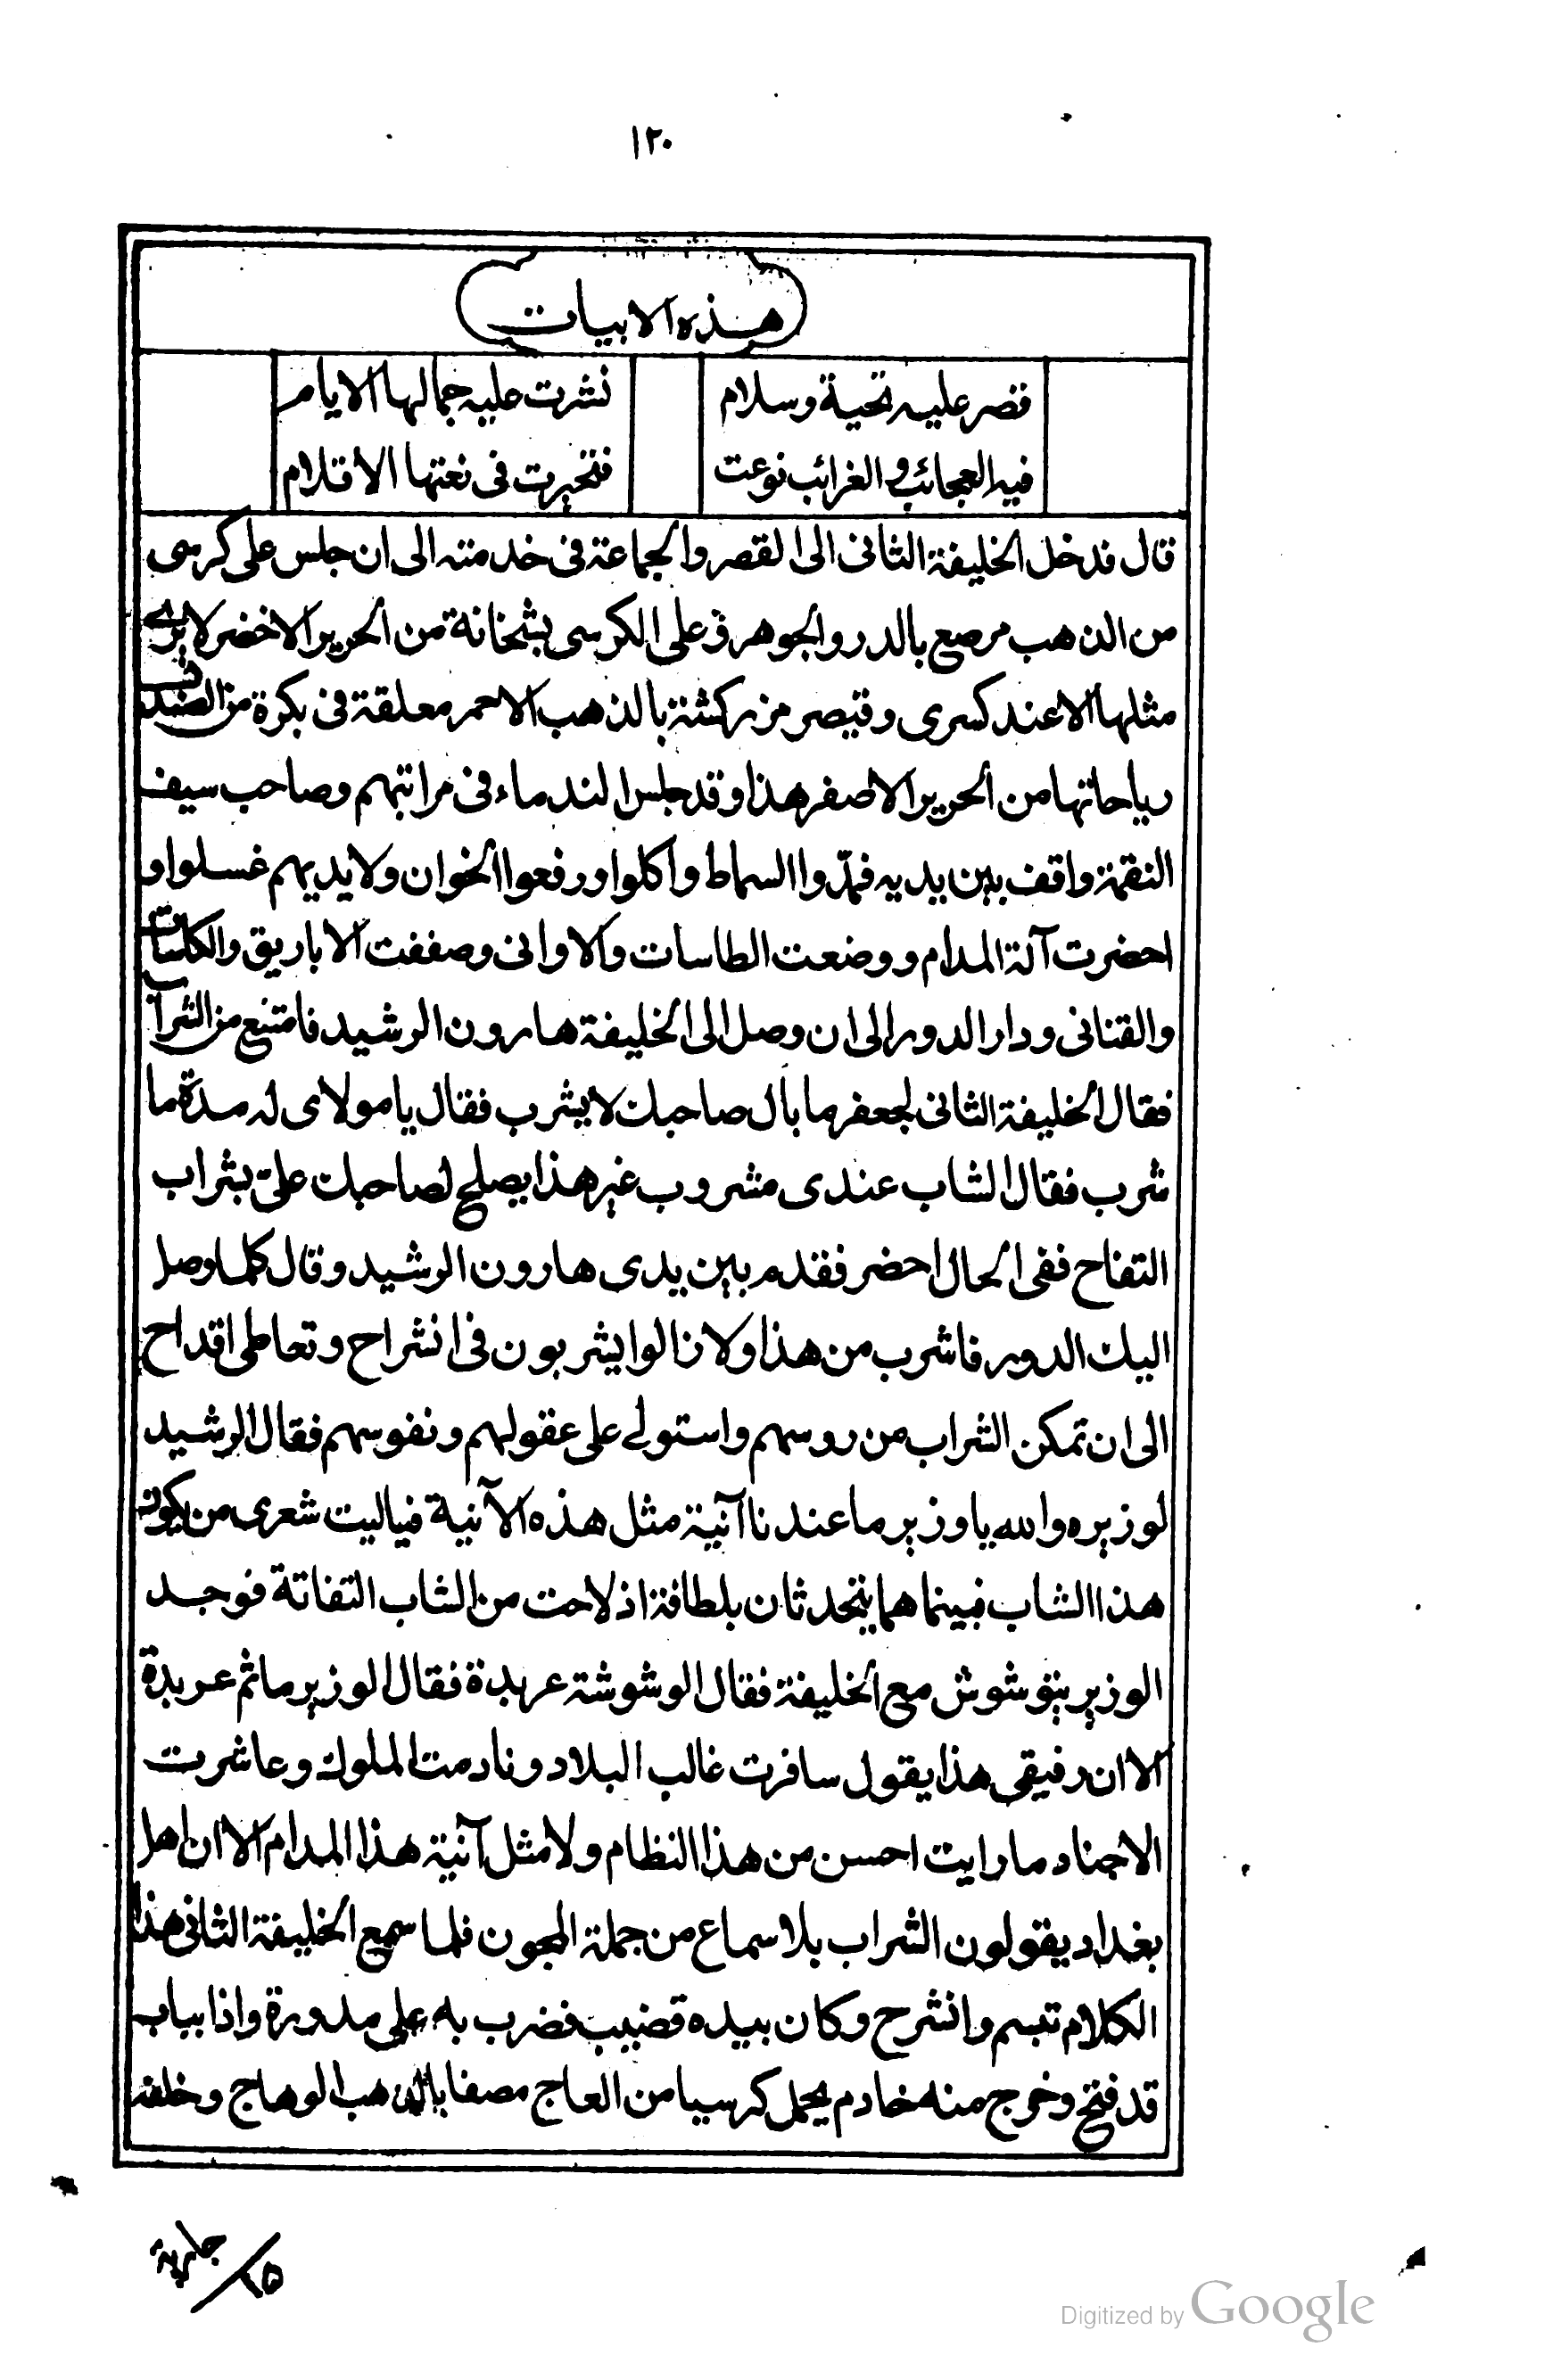 ١٢٠
هذه الابيات
قصر عليه تحية وسلام نشرت عليه جمالها الايام
فيه العجائب والغرائب نوعت فتحيرت فى نعتها الاقلام
قال فدخل الخليفة الثانى الى القصر والجماعة فى خدمته الى ان جلس على كرسى
من الذهب مرصع بالدر والجوهر وعلى الكرسى بشخانة من الحرير الاخضر لا يرى
مثلها الا عند كسرى وقيصر مزركشة بالذهب الاحمر معلقة فى بكرة من الصندل
رياحاتها من الحرير الاصفر هذا وقد جلس الندماء فى مراتبهم وصاحب سيف
النقمة واقف بين يديه فمدّوا السماط واكلوا ورفعوا الخوان ولايديهم غسلوا و
احضرت آلة المدام ووضعت الطاسات والاوانى وصففت الاباريق والكاسات
والقنانى ودار الدور الى ان وصل الى الخليفة هارون الرشيد فامتنع من الشراب
فقال الخليفة الثانى لجعفر ما بال صاحبك لا يشرب فقال يا مولاى له مدة ما
شرب فقال الشاب عندى مشروب غير هذا يصلح لصاحبك علىّ بشراب
التفاح ففى الحال احضر فقدم بين يدى هارون الرشيد وقال كلما وصل
اليك الدور فاشرب من هذا ولا زالوا يشربون فى انشراح وتعاطى اقداح
الى ان تمكن الشراب من روسهم واستولى على عقولهم ونفوسهم فقال الرشيد
لوزيره والله يا وزير ما عندنا آنية مثل هذه الآنية فياليت شعرى من يكون
هذا الشاب فبينما هما يتحدثان بلطافة اذ لاحت من الشاب التفاتة فوجد
الوزير يتوشوش مع الخليفة فقال الوشوشة عربدة فقال الوزير ما ثم عربدة
الا ان رفيقى هذا يقول سافرت غالب البلاد ونادمت الملوك وعاشرت
الاجناد ما رايت احسن من هذا النظام ولا مثل آنية هذا المدام الا ان اهل
بغداد يقولون الشراب بلا سماع من جملة المجون فلما سمع الخليفة الثانى هذا
الكلام تبسم وانشرح وكان بيده قضيب فضرب به على مدورة واذا بباب
قد فتح وخرج منه خادم يحمل كرسيا من العاج مصفا بالذهب الوهاج وخلفه
١٥
Digitized by Google